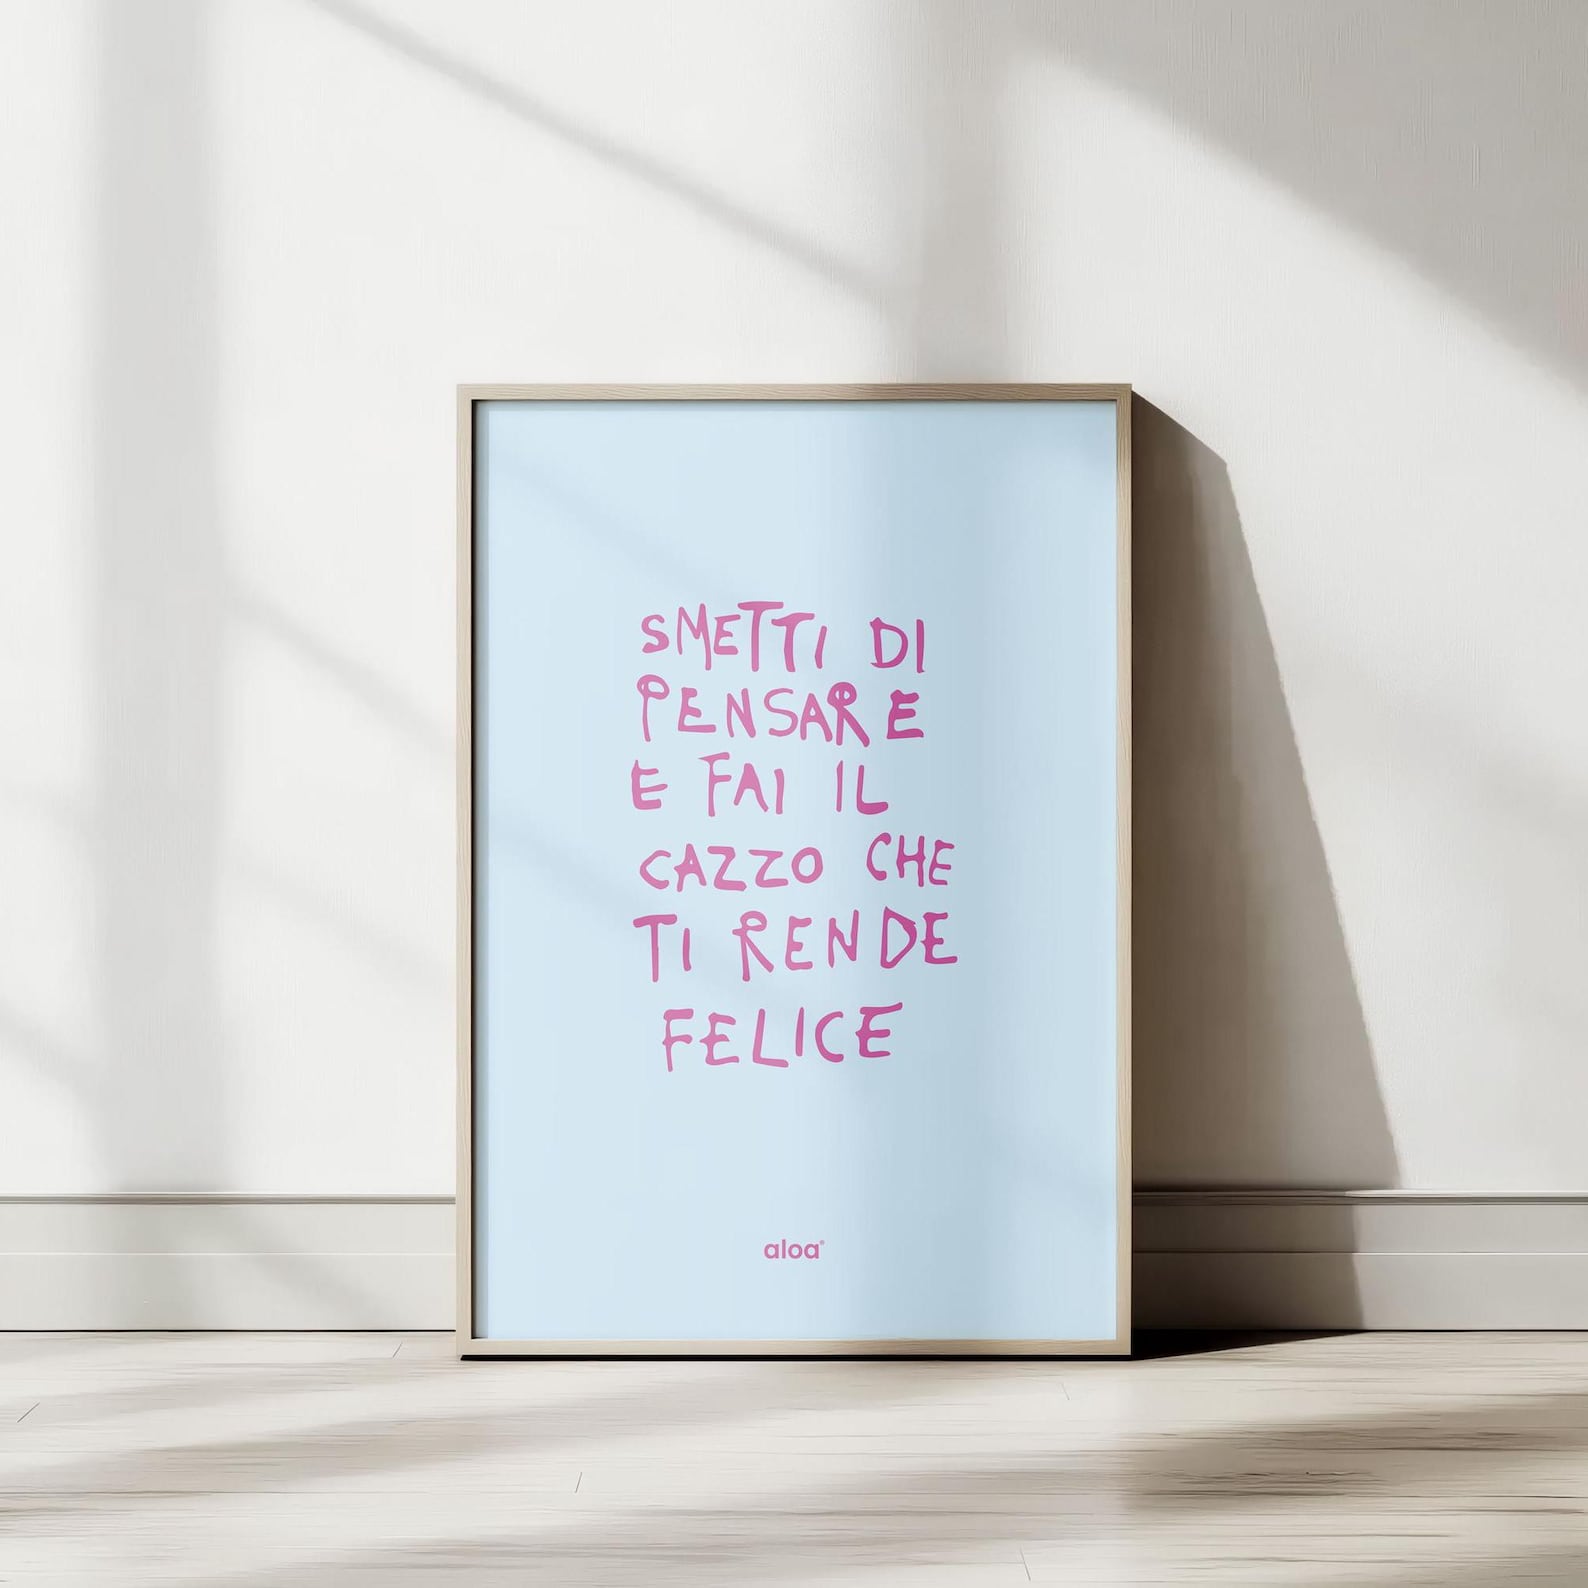 SMETTI DI
PENSARE
E FAI IL
CAZZO CHE
TI RENDE
FELICE
aloa®